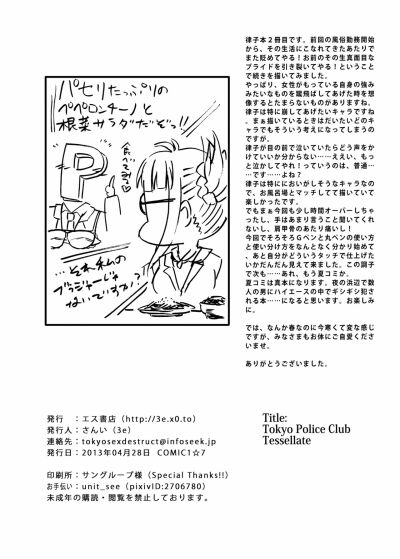 パセリたっぷりの
ペペロンチーノと
根菜サラダだぞっ!!
食べてねっ
P
…それ私の
ブラジャーじゃ
ないですか?
律子本2冊目です。前回の風俗勤務開始
から、その生活にこなれてきたあたりで
また貶めてやる!お前のその生真面目な
プライドを引き裂いてやる!ということ
で続きを描いてみました。
やっぱり、女性がもっている自身の強み
みたいなものを蹴飛ばしてあげた時を想
像するとたまらないものがありますね。
律子は特に崩してあげたいキャラですね
。まぁ描いているときはだいたいどのキ
ャラでもそういう考えになってしまうの
ですが。
律子が目の前で泣いていたらどう声をか
けていいか分からない……ええい、もっ
と泣かしてやれ!っていうのは、普通…
…です……よね?
律子は特ににおいがしそうなキャラなの
で、お風呂場とマッチしてて描いていて
楽しかったです。
でもまぁ今回も少し時間オーバーしちゃ
ったし、手はあまり言うこと聞いてくれ
ないし、肩甲骨のあたり痛いし!
今回でそろそろGペンと丸ペンの使い方
と使い分け方をなんとなく分かり始めて
、あと自分がどういうタッチで仕上げた
いかだんだん見えて来ました。この調子
で次も……あれ、もう夏コミか。
夏コミは真本になります。夜の浜辺で数
人の男にハイエースの中でギシギシ犯さ
れる本……になると思います。お楽しみ
に。
では、なんか春なのに今寒くて変な感じ
ですが、みなさまもお体にご自愛くださ
いませ。
ありがとうございました。
発行 :エス書店(http://3e.x0.to)
発行人:さんい(3e)
連絡先:tokyosexdestruct@infoseek.jp
発行日:2013年04月28日 COMIC1☆7
印刷所:サングループ様(Special Thanks!!)
お手伝い:unit_see(pixivID:2706780)
未成年の購読・閲覧を禁止しております。
Title:
Tokyo Police Club
Tessellate